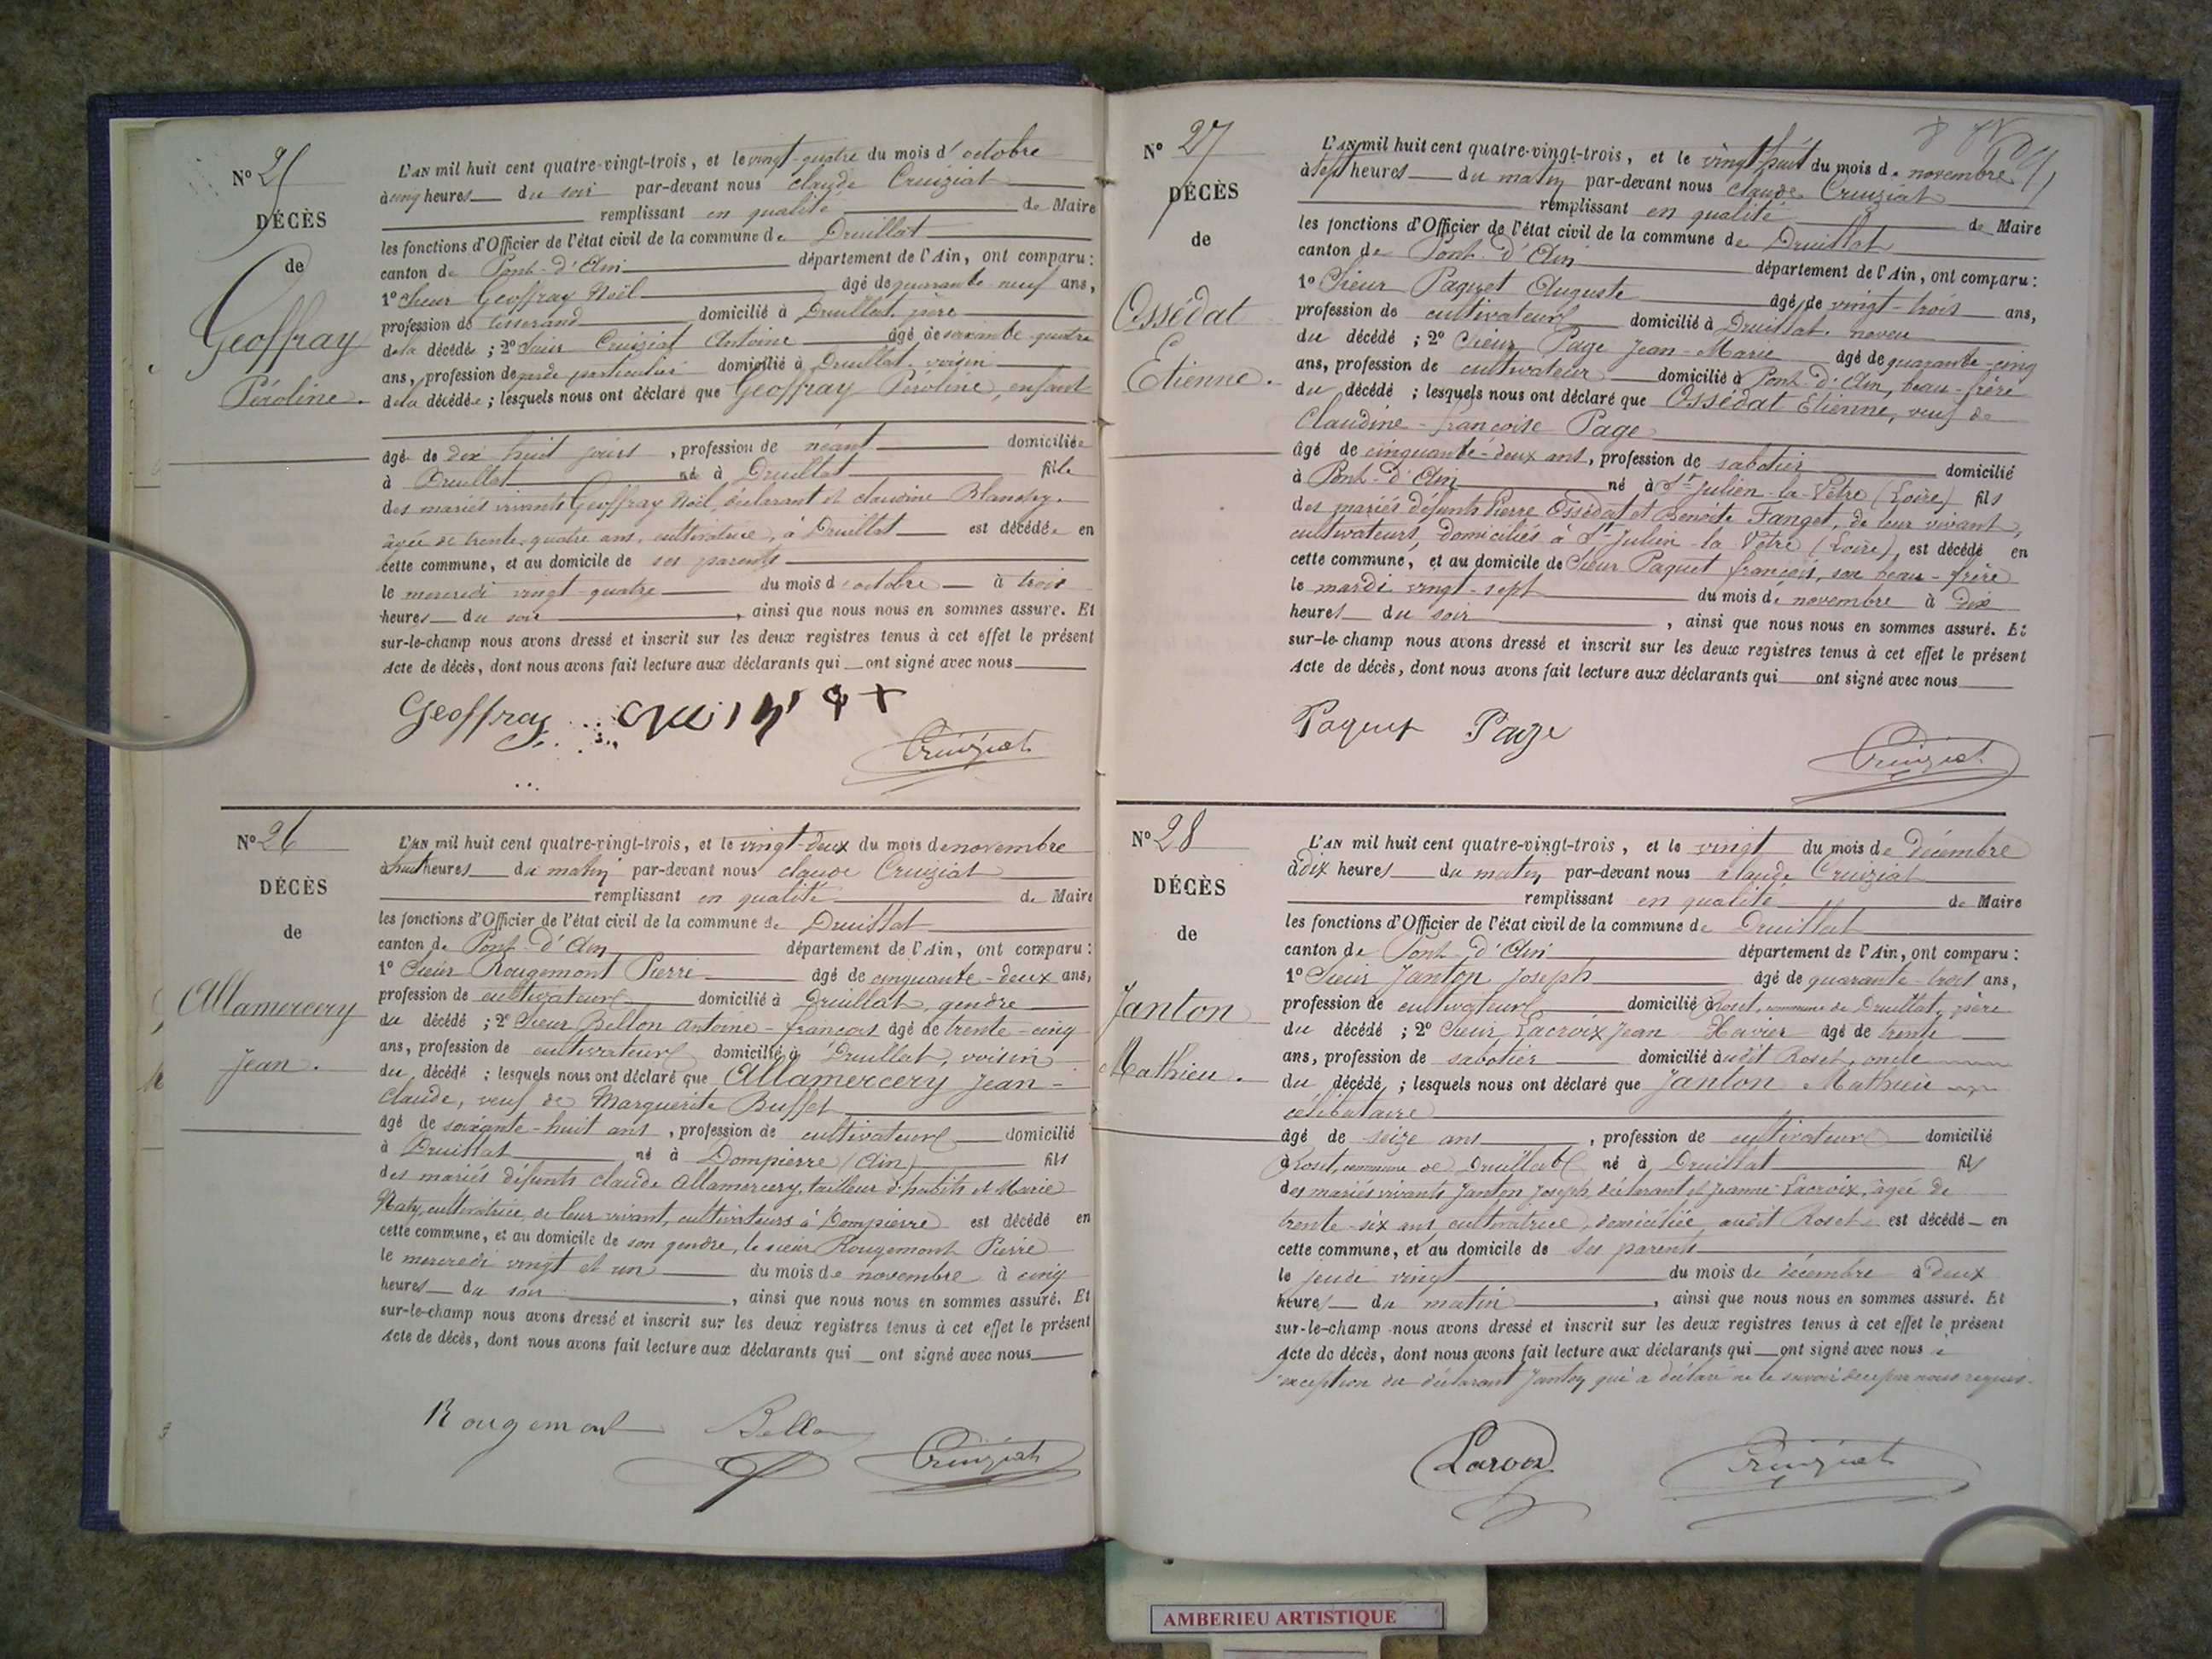 N° 25
DÉCÈS
de
Geoffray
Péroline.
L'AN mil huit cent quatre-vingt-trois, et le vingt-quatre du mois d'octobre
à cinq heures du soir par-devant nous claude Cruiziat
remplissant en qualité de Maire
les fonctions d'Officier de l'état civil de la commune de Druillat
canton de Pont-d'Ain département de l'Ain, ont comparu :
1° Sieur Geoffray Noël âgé de quarante-neuf ans,
profession de tisserand domicilié à Druillat, père
de la décédée ; 2° Sieur Cruiziat Antoine âgé de soixante-quatre
ans, profession de garde particulier domicilié à Druillat, voisin
de la décédée ; lesquels nous ont déclaré que Geoffray Péroline, enfant
âgé de dix huit jours, profession de néant domiciliée
à Druillat né à Druillat fille
des mariés vivants Geoffray Noël, déclarant et claudine
âgée de trente-quatre ans, cultivatrice, à Druillat est décédée en
cette commune, et au domicile de ses parents
le mercredi vingt-quatre du mois d'octobre à trois
heures du soir, ainsi que nous nous en sommes assuré. Et
sur-le-champ nous avons dressé et inscrit sur les deux registres tenus à cet effet le présent
Acte de décès, dont nous avons fait lecture aux déclarants qui ont signé avec nous
Geoffray Cruiziat
N° 26
DÉCÈS
de
Allamercery
Jean.
L'AN mil huit cent quatre-vingt-trois, et le vingt-deux du mois de novembre
à huit heures du matin par-devant nous claude Cruiziat
remplissant en qualité de Maire
les fonctions d'Officier de l'état civil de la commune de Druillat
canton de Pont-d'Ain département de l'Ain, ont comparu :
1° Sieur Rougemont Pierre âgé de cinquante-deux ans,
profession de cultivateur domicilié à Druillat, gendre
du décédé ; 2° Sieur Bellon Antoine-françois âgé de trente-cinq
ans, profession de cultivateur domicilié à Druillat, voisin
du décédé ; lesquels nous ont déclaré que Allamercery Jean-
Claude, veuf de Marguerite Buffet
âgé de soixante-huit ans, profession de cultivateur domicilié
à Druillat né à Dompierre (Ain) fils
des mariés défunts claude Allamercery, tailleur d'habits et Marie
cultivatrice, de leur vivant, cultivateurs à Dompierre est décédé en
cette commune, et au domicile de son gendre, le sieur Rougemont Pierre
le mercredi vingt et un du mois de novembre à cinq
heures du soir, ainsi que nous nous en sommes assuré. Et
sur-le-champ nous avons dressé et inscrit sur les deux registres tenus à cet effet le présent
Acte de décès, dont nous avons fait lecture aux déclarants qui ont signé avec nous
Rougemont Bellon Cruiziat
N° 27
DÉCÈS
de
Ossédat
Etienne.
L'AN mil huit cent quatre-vingt-trois, et le vingt-huit du mois de novembre
à sept heures du matin par-devant nous claude Cruiziat
remplissant en qualité de Maire
les fonctions d'Officier de l'état civil de la commune de Druillat
canton de Pont-d'Ain département de l'Ain, ont comparu :
1° Sieur Paquet Auguste âgé de vingt-trois ans,
profession de cultivateur domicilié à Druillat, neveu
du décédé ; 2° Sieur Page Jean-Marie âgé de quarante-cinq
ans, profession de cultivateur domicilié à Pont-d'Ain, beau-frère
du décédé ; lesquels nous ont déclaré que Ossédat Etienne, veuf de
Claudine-françoise Page
âgé de cinquante-deux ans, profession de sabotier domicilié
à Pont-d'Ain né à St Julien-la-Vêtre (Loire) fils
des mariés défunts Pierre Ossédat et Benoite Fanget, de leur vivant,
cultivateurs, domiciliés à St Julien-la-Vêtre (Loire), est décédé en
cette commune, et au domicile de Sieur Paquet françois, son beau-frère
le mardi vingt-sept du mois de novembre à dix
heures du soir, ainsi que nous nous en sommes assuré. Et
sur-le-champ nous avons dressé et inscrit sur les deux registres tenus à cet effet le présent
Acte de décès, dont nous avons fait lecture aux déclarants qui ont signé avec nous
Paquet Page Cruiziat
N° 28
DÉCÈS
de
Janton
Mathieu.
L'AN mil huit cent quatre-vingt-trois, et le vingt du mois de décembre
à dix heures du matin par-devant nous claude Cruiziat
remplissant en qualité de Maire
les fonctions d'Officier de l'état civil de la commune de Druillat
canton de Pont-d'Ain département de l'Ain, ont comparu :
1° Sieur Janton Joseph âgé de quarante-trois ans,
profession de cultivateur domicilié à Roset, commune de Druillat, père
du décédé ; 2° Sieur Lacroix Jean Xavier âgé de trente
ans, profession de sabotier domicilié audit Roset, oncle
du décédé ; lesquels nous ont déclaré que Janton Mathieu
célibataire
âgé de seize ans, profession de cultivateur domicilié
à Roset, commune de Druillat né à Druillat fils
des mariés vivants Janton Joseph, déclarant et Jeanne Lacroix, âgée de
trente-six ans, cultivatrice, domiciliée audit Roset est décédé en
cette commune, et au domicile de ses parents
le jeudi vingt du mois de décembre à deux
heures du matin, ainsi que nous nous en sommes assuré. Et
sur-le-champ nous avons dressé et inscrit sur les deux registres tenus à cet effet le présent
Acte de décès, dont nous avons fait lecture aux déclarants qui ont signé avec nous à
l'exception du déclarant Janton qui a déclaré ne le savoir de ce par nous requis.
Lacroix Cruiziat
AMBERIEU ARTISTIQUE